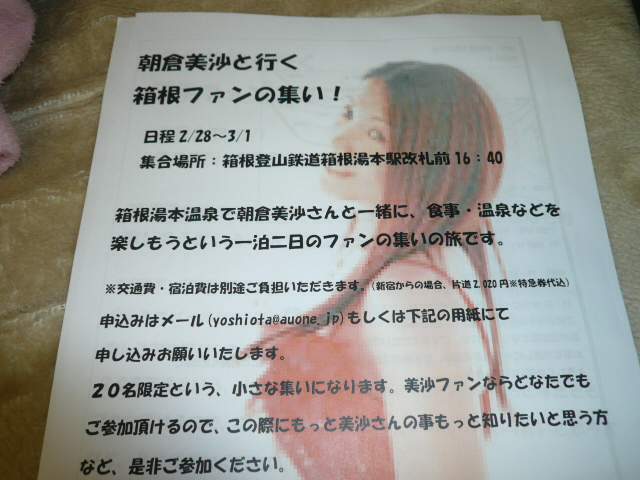 朝倉美沙と行く
箱根ファンの集い！
日程2/28～3/1
集合場所：箱根登山鉄道箱根湯本駅改札前16：40
箱根湯本温泉で朝倉美沙さんと一緒に、食事・温泉などを
楽しもうという一泊二日のファンの集いの旅です。
※交通費・宿泊費は別途ご負担いただきます。(新宿からの場合、片道2,020円※特急券代込)
申込みはメール(yoshiota@auone.jp)もしくは下記の用紙にて
申し込みお願いいたします。
２０名限定という、小さな集いになります。美沙ファンならどなたでも
ご参加頂けるので、この際にもっと美沙さんの事もっと知りたいと思う方
など、是非ご参加ください。